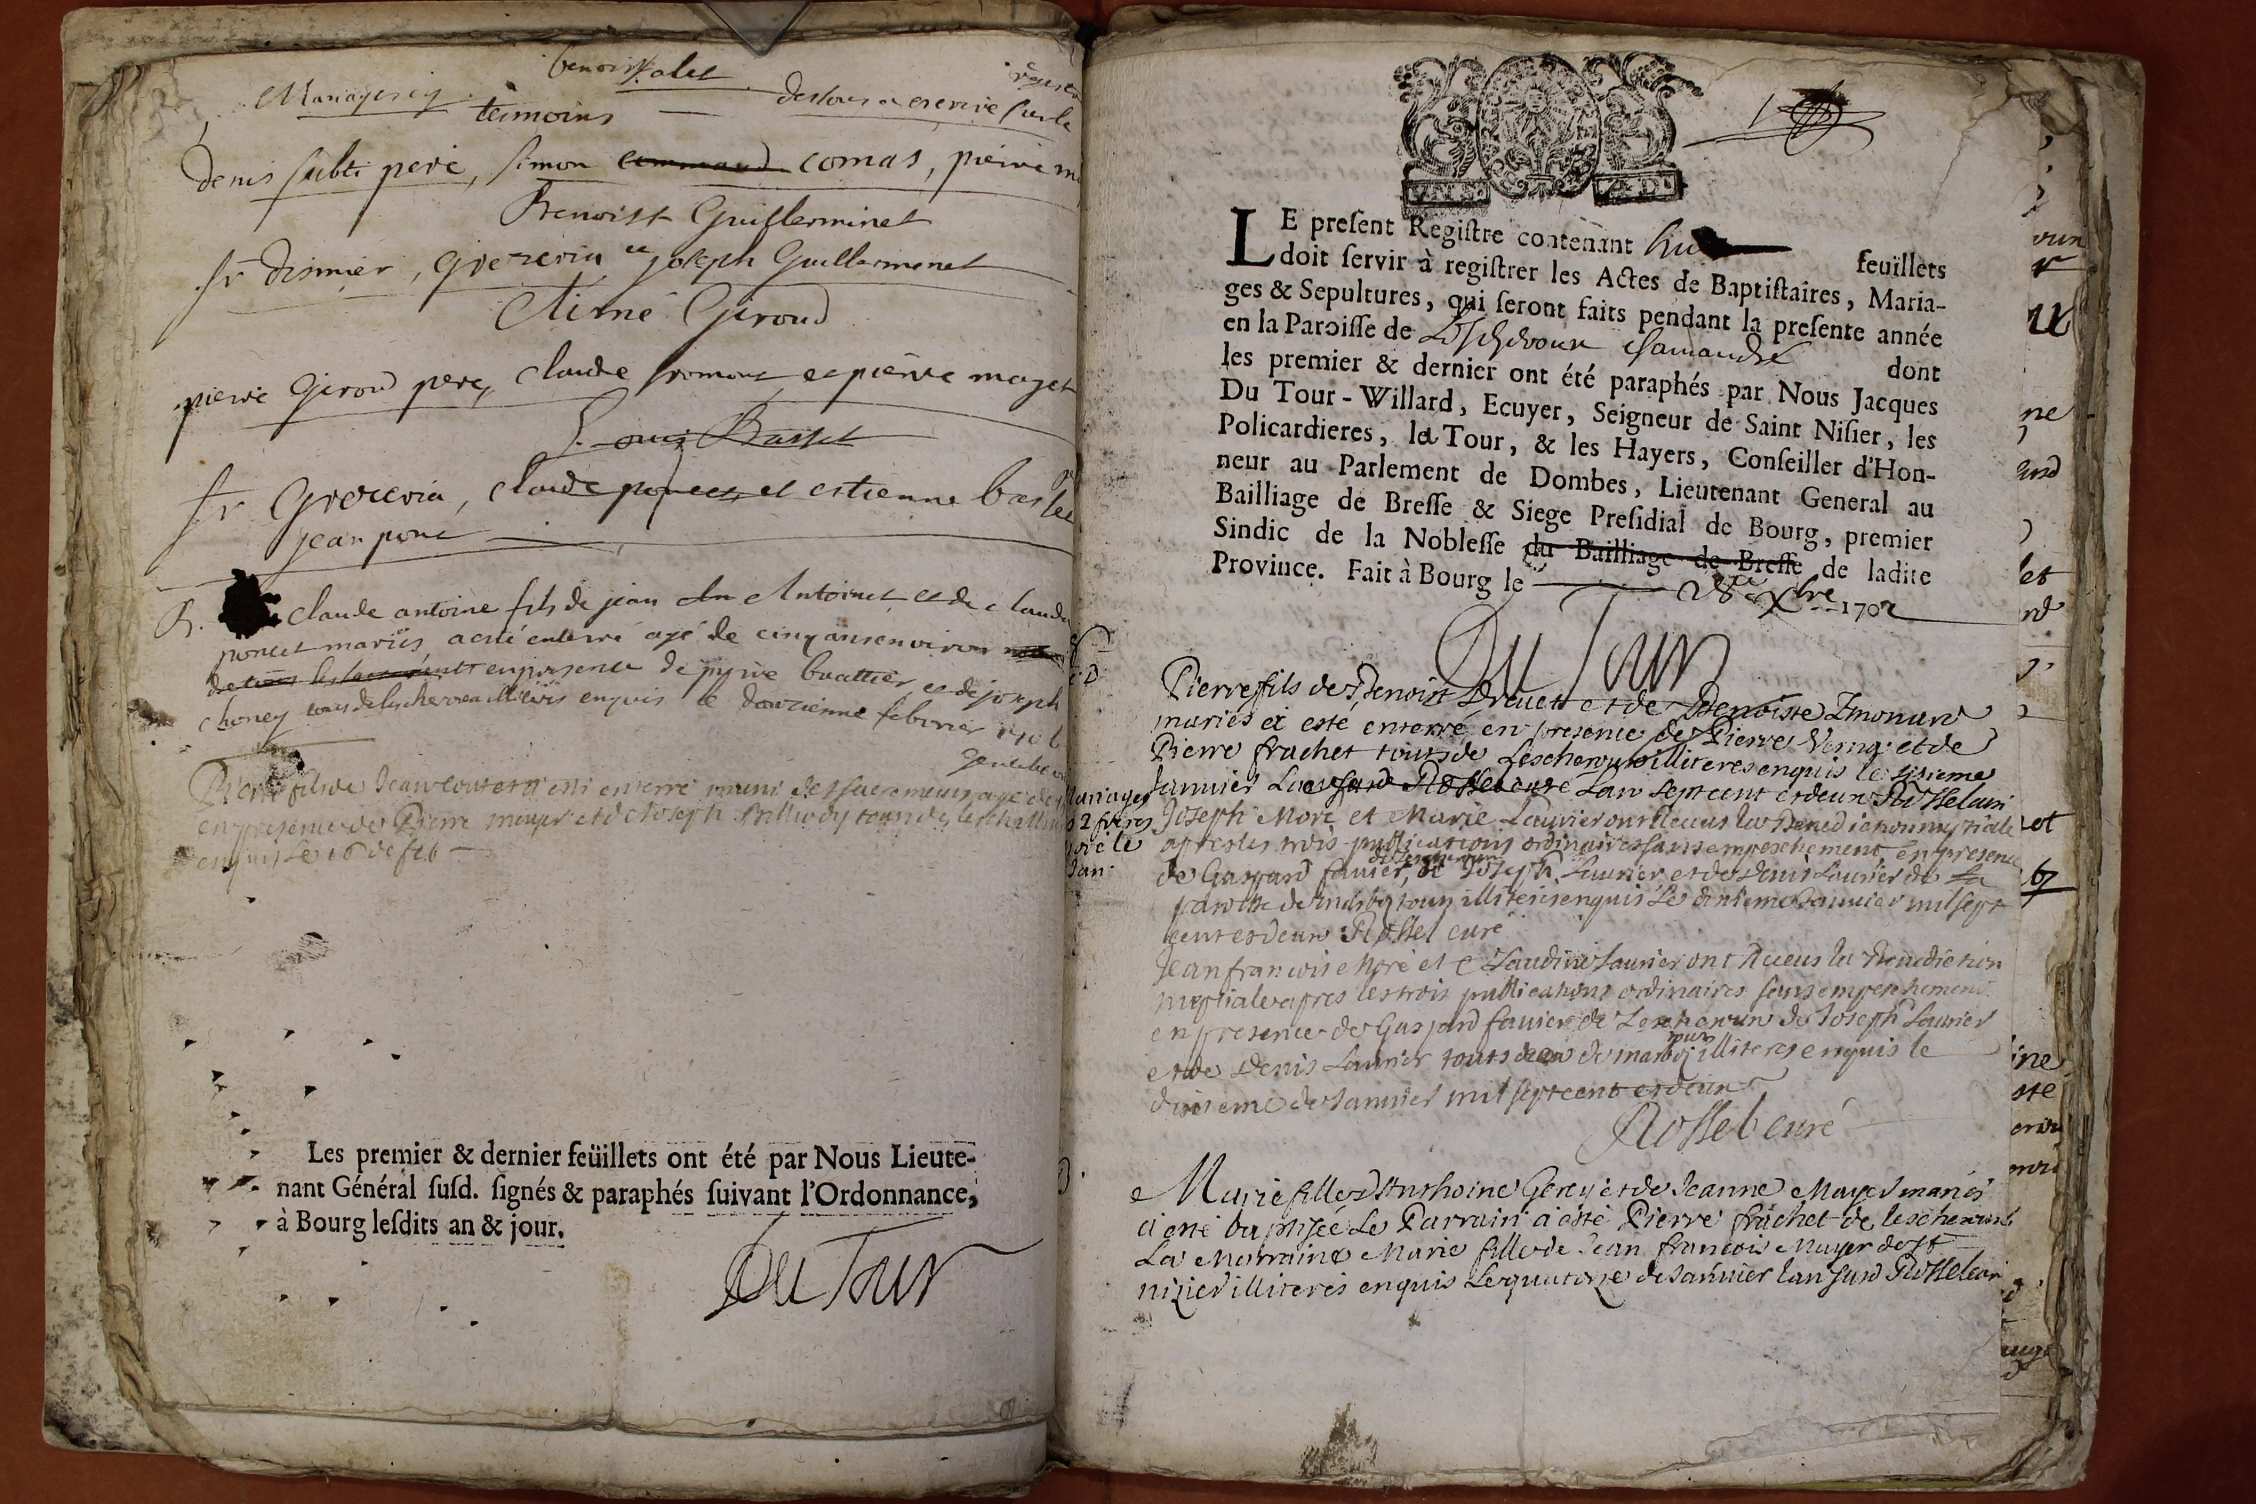 Mariages icy
benoist alet
temoins
dessous a escrire sur le
denis subti pere, simon comas, pierre
Benoist Guillerminet
sr disnier, grezeria et joseph Guillermenet
Aimé Giroud
pierre Giroud pere, claude fromont et pierre mayet
Louis Basset
sr Grezeria, claude poncet et estienne bas
jean pont
claude antoine fils de jean Antoinet et de claud
poncet mariés, a esté enterré agé de cinq ans environ
en presence de pierre buattier et de joseph
choney tous de lescheroux illiteres enquis le douzienne febvrier
Pierre fils de Jean est enterré muni des sacremens agé de
en presence de Pierre mayer et de Joseph tous de
enquis le 16 de feb
Les premier & dernier feüillets ont été par Nous Lieute-
nant Général susd. signés & paraphés suivant l'Ordonnance,
à Bourg lesdits an & jour.
Du Tour
LE present Registre contenant feuillets
doit servir à registrer les Actes de Baptistaires, Maria-
ges & Sepultures, qui seront faits pendant la presente année
en la Paroisse de dont
les premier & dernier ont été paraphés par Nous Jacques
Du Tour-Willard, Ecuyer, Seigneur de Saint Nisier, les
Policardieres, la Tour, & les Hayers, Conseiller d'Hon-
neur au Parlement de Dombes, Lieutenant General au
Bailliage de Bresse & Siege Presidial de Bourg, premier
Sindic de la Noblesse du Bailliage de Bresse de ladite
Province. Fait à Bourg le 28e Xbre 1702
Du Tour
Pierre fils de Benoist Drevet et de Benoiste
mariés et esté enterré en presence de Pierre et de
Pierre frachet touts de Lescheroux illiteres enquis le sixieme
Janvier Lan sept cent et deux Rossel curé
Joseph Moré et Marie Laurier ont Receus la Benediction nuptiale
apres les trois publications ordinaires sans empeschement en presence
de Gaspard favier, de Lescheroux de Joseph Laurier et de Denis Laurier de la
paroisse de touts illiteres enquis Le dixieme Janvier mil sept
cent et deux Rossel curé
Jean francois Moré et Claudine Laurier ont Receus la Benediction
nuptiale apres les trois publications ordinaires sans empeschement
en presence de Gaspard favier de Lescheroux de Joseph Laurier
et de Denis Laurier touts deux de touts illiteres enquis le
dixieme de Janvier mil sept cent et deux
Rossel curé
Marie fille d'Anthoine Gerey et de Jeanne Mayer mariés
a esté baptisée Le Parrain a esté Pierre frachet de lescheroux
La Marraine Marie fille de Jean francois Mayer de St
nizier illiteres enquis Le quatorze de Janvier lan susd Rossel curé